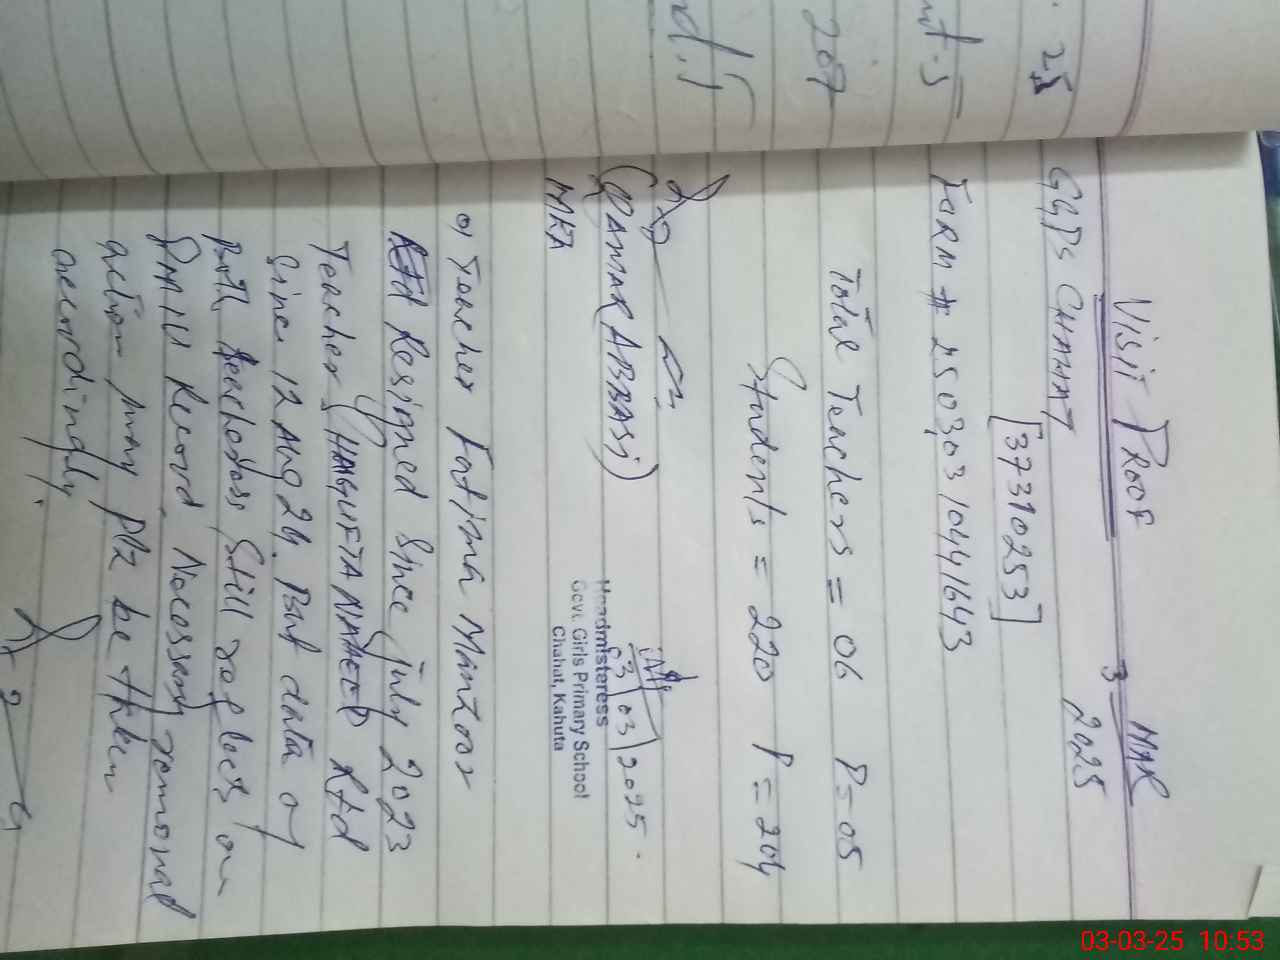 25
nt.5
207
Visit Proof
3 MAR
2025
GGPS CHAHAT
[37310253]
FORM # 2503031044 1643
Total Teachers = 06 P=05
Students = 220 P=204
(QAMAR ABBASI)
MEA
03/03/2025.
Headmisteress
Govt. Girls Primary School
Chahat, Kahuta
o, Teacher Fatima Manzoor
Resigned Since July 2023
Teacher SHAGUFTA NAHEED Rtd
Since 12 Aug 24. But data of
Both teachers Still reflects on
PMIU Record. Necessary removal
action may plz be taken
accordingly.
03-03-25 10:53